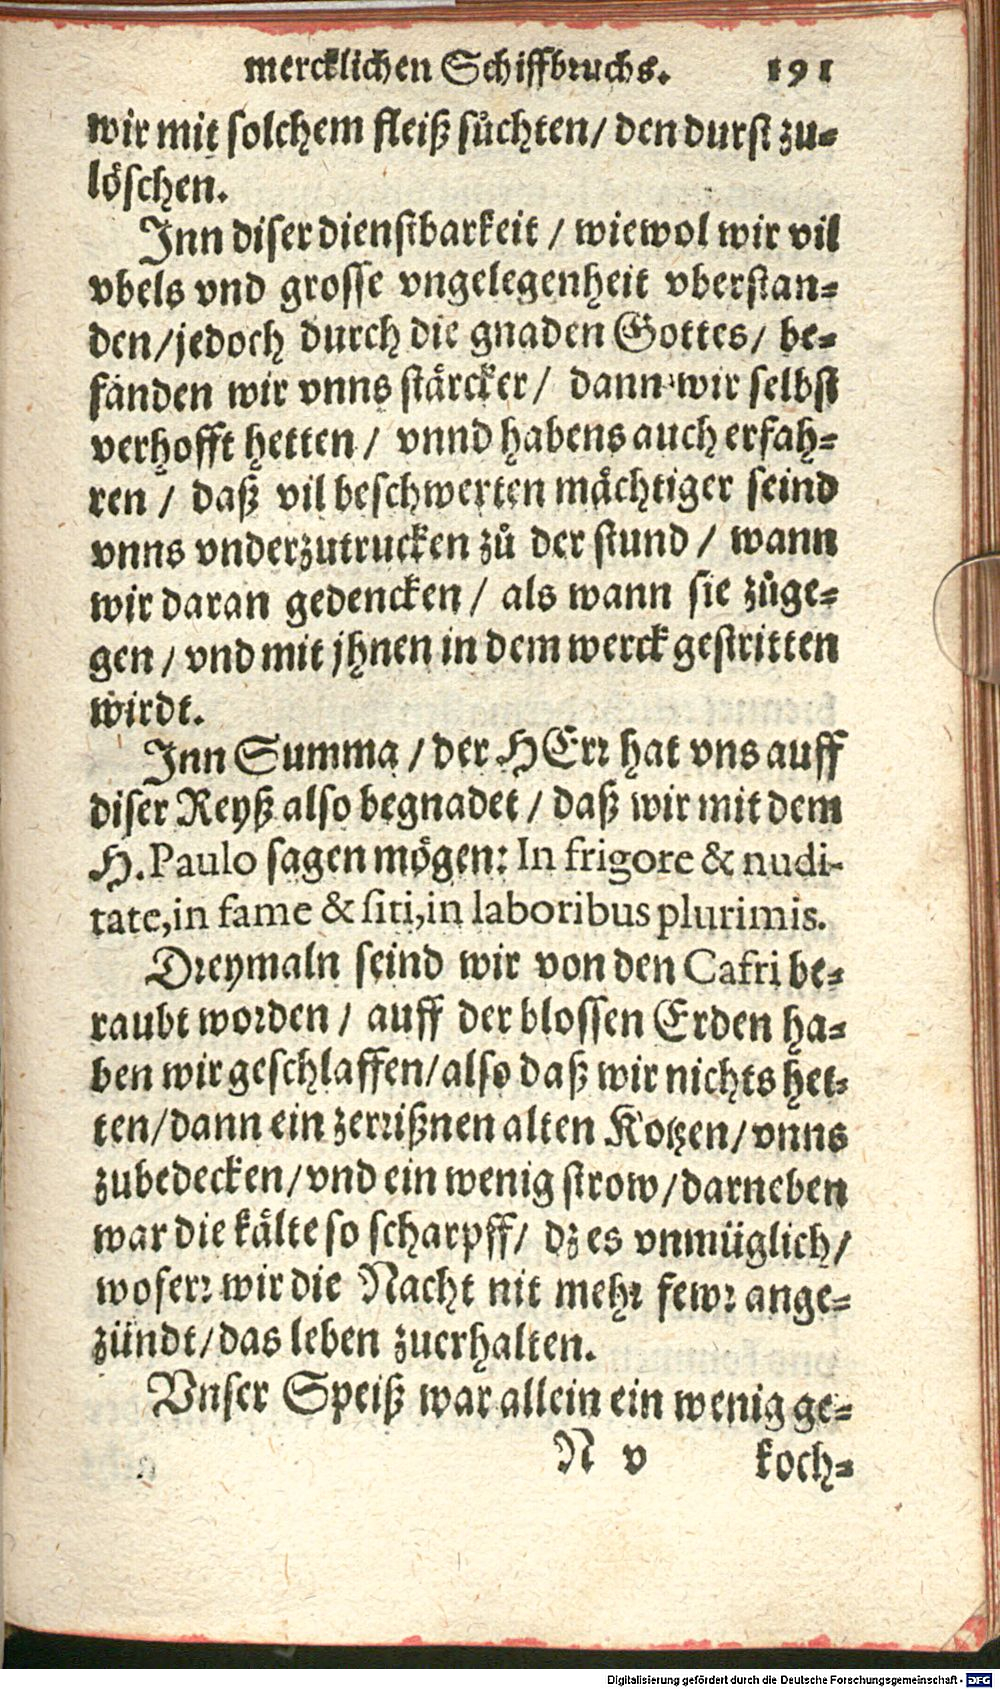 mercklichen Schiffbruchs. 191
wir mit solchem fleiß sůchten/ den durst zu-
löschen.
Jnn diser dienstbarkeit / wiewol wir vil
vbels vnd grosse vngelegenheit vberstan-
den/jedoch durch die gnaden Gottes/ be-
fanden wir vnns stärcker/ dann wir selbst
verhofft hetten / vnnd habens auch erfah-
ren / daß vil beschwerten mächtiger seind
vnns vnderzutrucken zů der stund / wann
wir daran gedencken / als wann sie zůge-
gen / vnd mit jhnen in dem werck gestritten
wirdt.
Jnn Summa / der HErr hat vns auff
diser Reyß also begnadet / daß wir mit dem
H. Paulo sagen mögen: In frigore & nudi-
tate, in fame & siti, in laboribus plurimis.
Dreymaln seind wir von den Cafri be-
raubt worden / auff der blossen Erden ha-
ben wir geschlaffen/ also daß wir nichts het-
ten/ dann ein zerrißnen alten Kotzen/ vnns
zubedecken/ vnd ein wenig strow/ darneben
war die kälte so scharpff/ dz es vnmüglich/
woferr wir die Nacht nit mehr fewr ange-
zündt/ das leben zuerhalten.
Vnser Speiß war allein ein wenig ge-
N v koch-
Digitalisierung gefördert durch die Deutsche Forschungsgemeinschaft - DFG